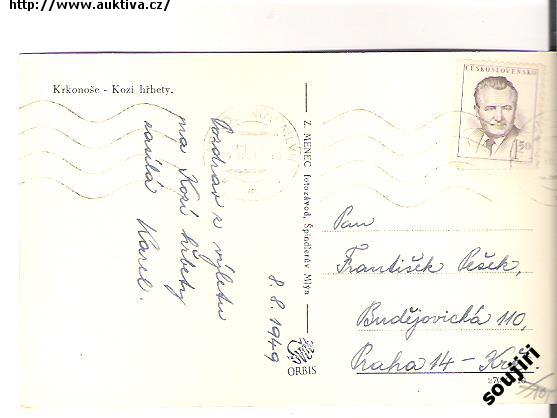 http://www.auktiva.cz/
Krkonoše - Kozí hřbety.
ČESKOSLOVENSKO
1.50
Pozdrav z výletu
na Kozí hřbety
zasílá Karel.
8.8.1949
Z. MENEC fotozávod, Špindlerův Mlýn
ORBIS
Pan
František Pešek,
Budějovická 110,
Praha 14 - Krč.
soujiri